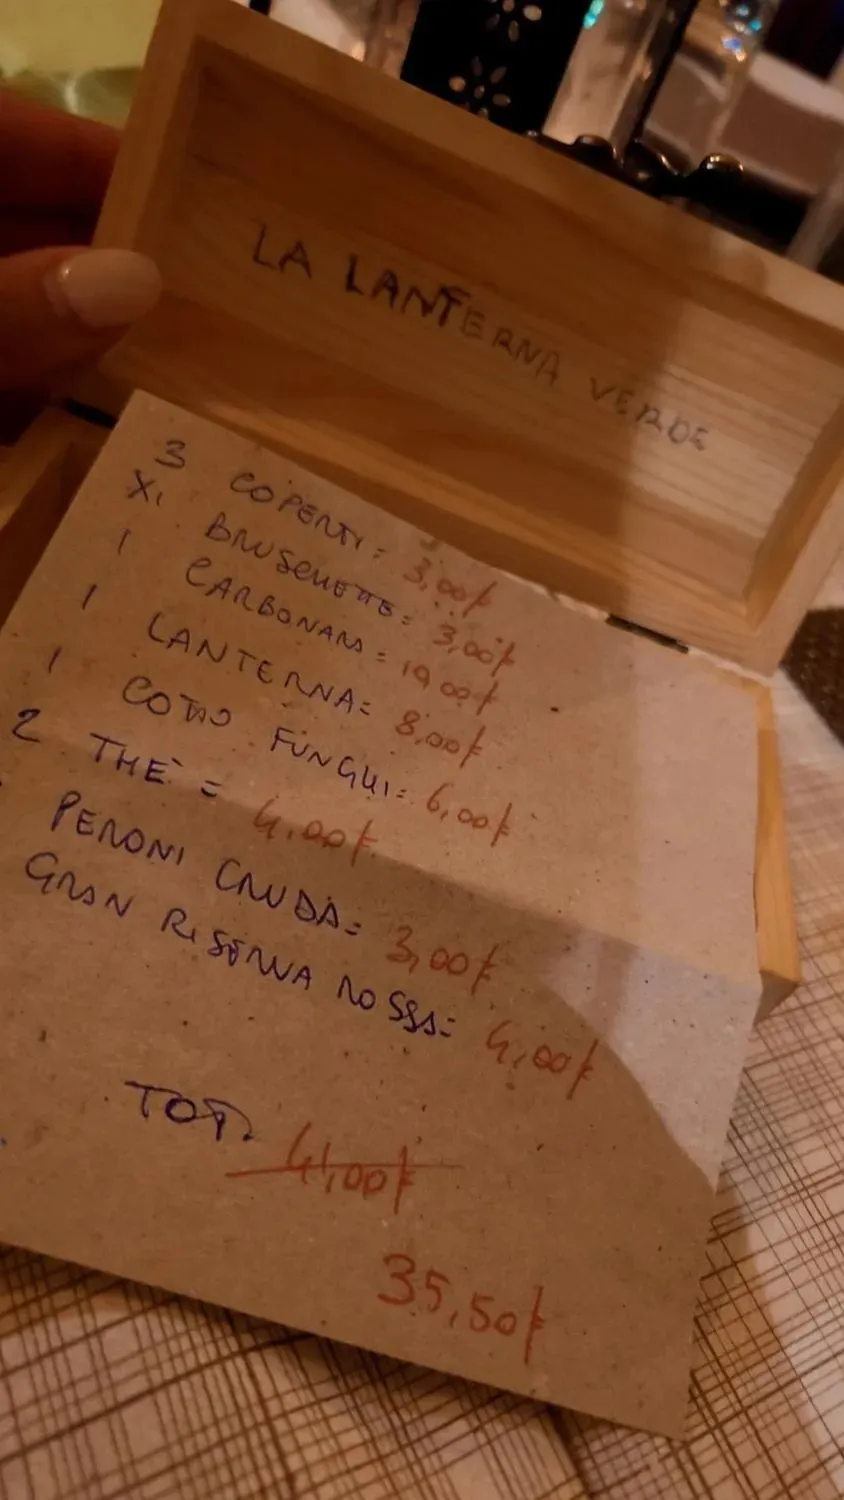 LA LANTERNA VERDE
3 COPERTI = 3,00€
X1 BRUSCHETTE = 3,00€
1 CARBONARA = 10,00€
1 LANTERNA = 8,00€
1 COTTO FUNGHI = 6,00€
2 THÈ = 4,00€
PERONI CRUDA = 3,00€
GRAN RISERVA ROSSA = 4,00€
TOT. 41,00€
35,50€